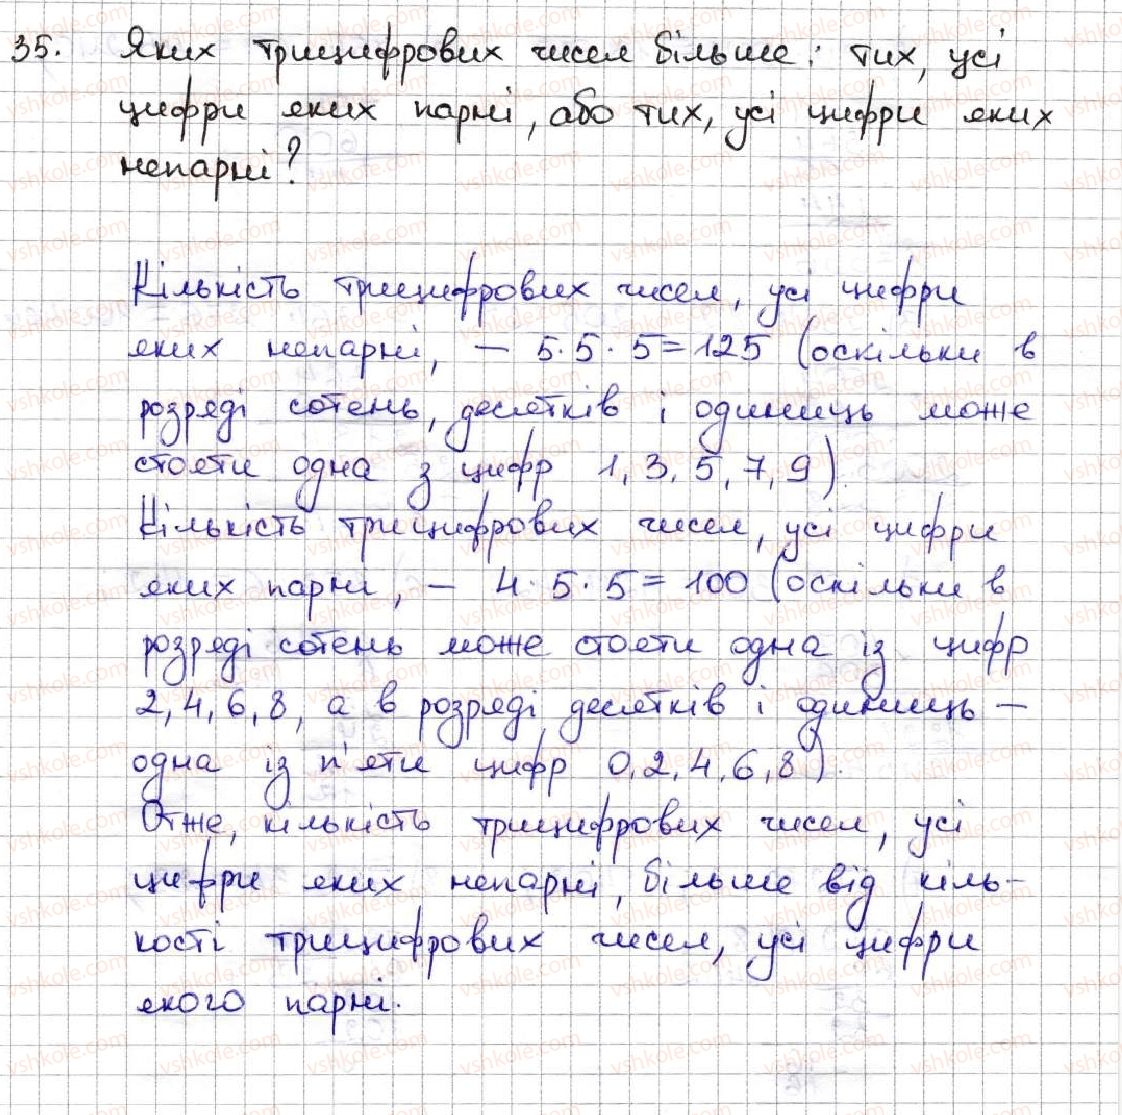 35. Яких трицифрових чисел більше: тих, усі
цифри яких парні, або тих, усі цифри яких
непарні?
Кількість трицифрових чисел, усі цифри
яких непарні, – 5·5·5=125 (оскільки в
розряді сотень, десятків і одиниць може
стояти одна з цифр 1, 3, 5, 7, 9).
Кількість трицифрових чисел, усі цифри
яких парні, – 4·5·5=100 (оскільки в
розряді сотень може стояти одна із цифр
2, 4, 6, 8, а в розряді десятків і одиниць –
одна із п'яти цифр 0, 2, 4, 6, 8).
Отже, кількість трицифрових чисел, усі
цифри яких непарні, більше від кіль-
кості трицифрових чисел, усі цифри
якого парні.